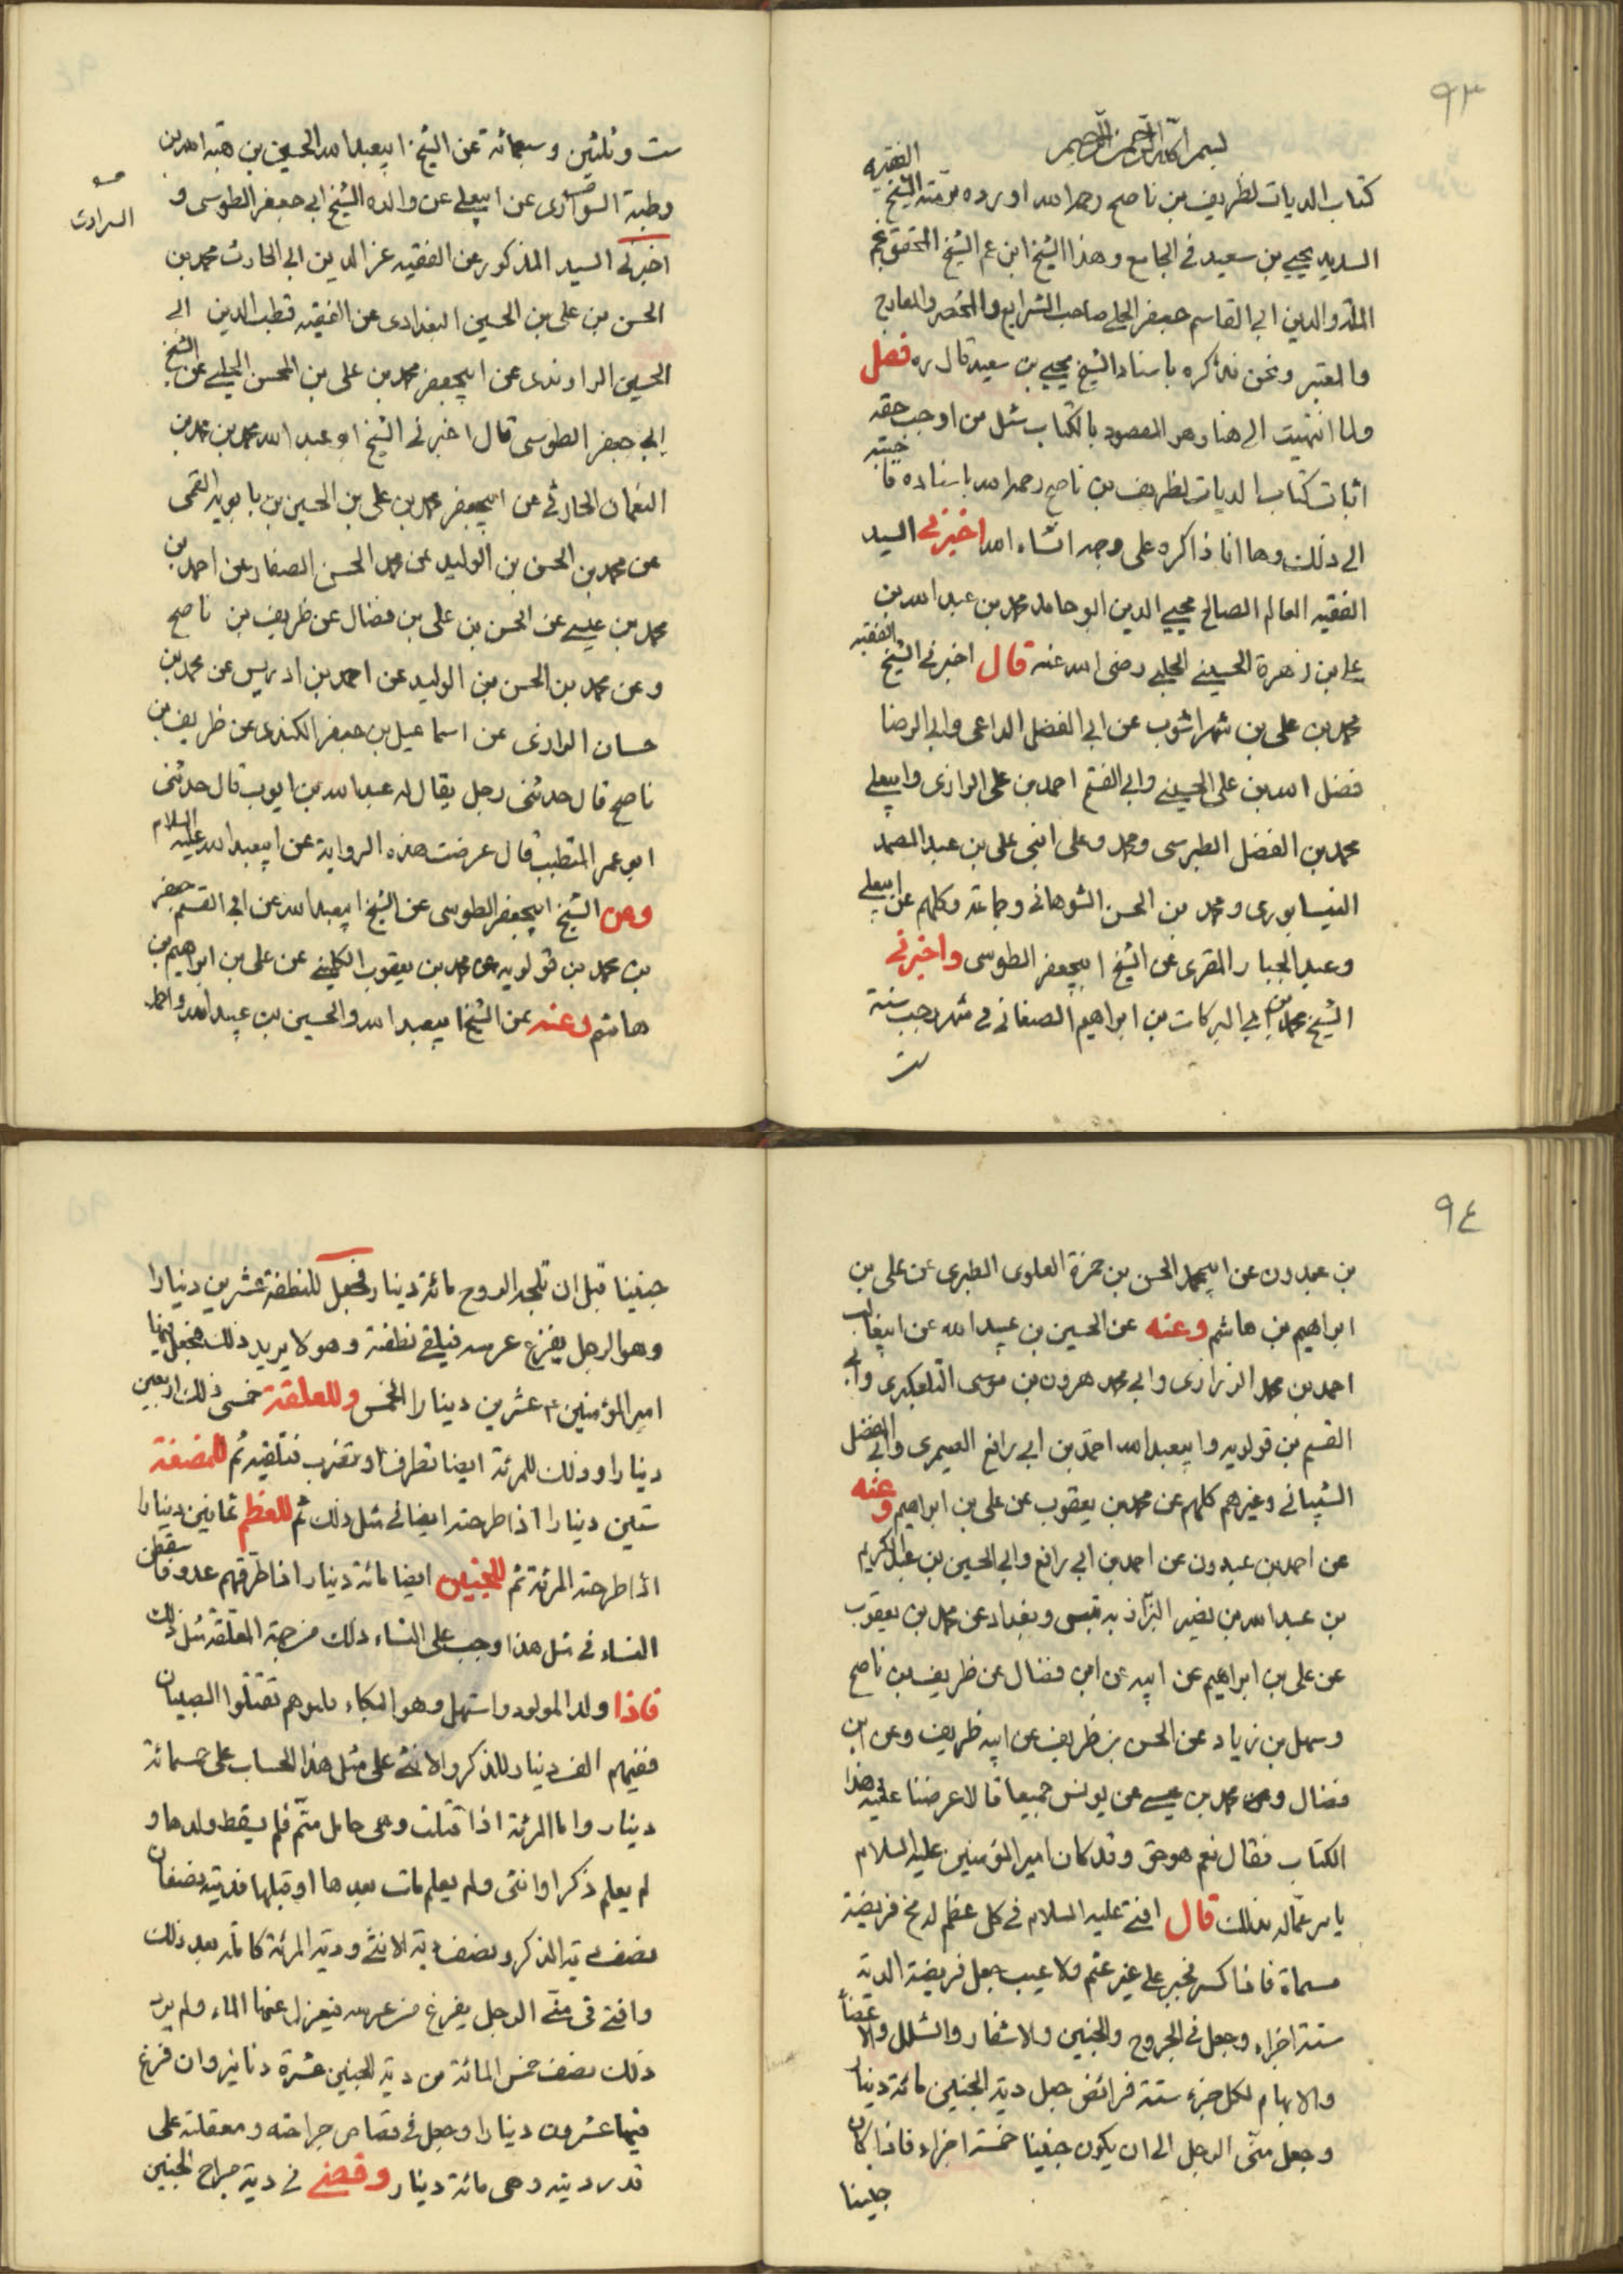 ٩٣
بسم الله الرحمن الرحيم
كتاب الديات لظريف بن ناصح رحمه الله اورده برمته الشيخ الفقيه
السديد يحيي بن سعيد في الجامع وهذا الشيخ ابن عم الشيخ المحقق نجم
الملة والدين ابي القاسم جعفر الحلي صاحب الشرايع والمختصر والمعارج
والمعتبر ونحن نذكره باسناد الشيخ يحيي بن سعيد قال ره فصل
ولما انتهيت الى هنا وهو المقصود بالكتاب سئل من اوجب حقه
اثبات كتاب الديات لظريف بن ناصح رحمه الله باسناده فاجبته
الى ذلك وها انا ذاكره على وجهه انشاء الله اخبرني السيد
الفقيه العالم الصالح محيي الدين ابو حامد محمد بن عبد الله بن
علي بن زهرة الحسيني الحلبي رضى الله عنه قال اخبرني الشيخ الفقيه
محمد بن علي بن شهراشوب عن ابي الفضل الداعى وابي الرضا
فضل الله بن علي الحسيني وابي الفتح احمد بن علي الرازى وابيعلي
محمد بن الفضل الطبرسى ومحمد وعلى ابني على بن عبد الصمد
النيسابورى ومحمد بن الحسن الشوهانى وجماعة وكلهم عن ابيعلي
وعبد الجبار المقرى عن الشيخ ابيجعفر الطوسى واخبرني
الشيخ محمد بن ابي البركات بن ابراهيم الصنعانى في شهر رجب سنة
ست
ست وثلثين وستمائة عن الشيخ ابيعبد الله الحسين بن هبة الله بن
رطبة السوراوى عن ابيعلي عن والده الشيخ ابي جعفر الطوسى و
السرادى
اخبرني السيد المذكور عن الفقيه عز الدين ابي الحارث محمد بن
الحسن بن علي بن الحسين البغدادى عن الفقيه قطب الدين ابي
الحسين الراوندى عن ابيجعفر محمد بن علي بن المحسن الحلبي عن الشيخ
ابي جعفر الطوسى قال اخبرني الشيخ ابو عبد الله محمد بن محمد بن
النعمان الحارثي عن ابيجعفر محمد بن علي بن الحسين بن بابويه القمى
عن محمد بن الحسن بن الوليد عن محمد الحسن الصفار عن احمد بن
محمد بن عيسى عن الحسن بن علي بن فضال عن ظريف بن ناصح
وعن محمد بن الحسن بن الوليد عن احمد بن ادريس عن محمد بن
حسان الرازى عن اسماعيل بن جعفر الكندى عن ظريف بن
ناصح قال حدثنى رجل يقال له عبد الله بن ايوب قال حدثنى
ابو عمر المتطبب قال عرضت هذه الرواية عن ابيعبد الله عليه السلام
وعن الشيخ ابيجعفر الطوسى عن الشيخ ابيعبد الله عن ابي القسم جعفر
بن محمد بن قولويه عن محمد بن يعقوب الكليني عن على بن ابراهيم بن
هاشم وعنه عن الشيخ ابيعبد الله والحسين بن عبيد الله واحمد
٩٤
بن عبدون عن ابيمحمد الحسن بن حمزة العلوى الطبرى عن على بن
ابراهيم بن هاشم وعنه عن الحسين بن عبيد الله عن ابيغالب
احمد بن محمد الزرارى وابي محمد هرون بن موسى التلعكبرى وابي
القسم بن قولويه وابيعبد الله احمد بن ابي رافع الصيمرى وابي المفضل
الشيبانى وغيرهم كلهم عن محمد بن يعقوب عن على بن ابراهيم وعنه
عن احمد بن عبدون عن احمد بن ابي رافع وابي الحسين بن عبد الكريم
بن عبد الله بن نصير البزاز بتنيس وبغداد عن محمد بن يعقوب
عن على بن ابراهيم عن ابيه عن ابن فضال عن ظريف بن ناصح
وسهل بن زياد عن الحسن بن ظريف عن ابيه ظريف وعن ابن
فضال وعن محمد بن عيسى عن يونس جميعا قالا عرضنا عليه هذا
الكتاب فقال نعم هو حق وقد كان امير المؤمنين عليه السلام
يامر عماله بذلك قال افتى عليه السلام في كل عظم له مخ فريضة
مسماة فاذا كسر فجبر على غير عثم ولا عيب جعل فريضة الدية
ستة اجزاء وجعل في الجروح والجنين والاشفار والشلل والاعضاء
والابهام لكل جزء ستة فرائض جعل دية الجنين مائة دينار
وجعل منى الرجل الى ان يكون جنينا خمسة اجزاء فاذا كان
جنينا
جنينا قبل ان تلجه الروح مائة دينار فجعل للنطفة عشرين دينارا
وهو الرجل يفزع عرسه فيلقى نطفته وهو لا يريد ذلك فجعل فيها
امير المؤمنين ع عشرين دينارا الخمس وللعلقة خمسى ذلك اربعين
دينارا وذلك للمرئة ايضا تطرف او تضرب فتلقيه ثم للمضغة
ستين دينارا اذا طرحته ايضا في مثل ذلك ثم للعظم ثمانين دينارا
اذا طرحته المرئة ثم للجنين ايضا مائة دينار اذا طرقهم عدو فاسقطن
النساء في مثل هذا وجب على النساء ذلك من جهة المعلقة مثل ذلك
فاذا ولد المولود واستهل وهو البكاء فقتلوا الصبيان
ففيهم الف دينار للذكر والانثى على مثل هذا الحساب على خمسمائة
دينار واما المرئة اذا قتلت وهى حامل متم فلم يسقط ولدها و
لم يعلم ذكرا وانثى ولم يعلم مات بعدها او قبلها فديته نصفان
نصف دية الذكر ونصف دية الانثى ودية المرئة كاملة بعد ذلك
وافتى في منى الرجل يفزع عن عرسه فيعزل عنها الماء ولم يرد
ذلك نصف خمس المائة من دية الجنين عشرة دنانير وان فرغ
فيها عشرون دينارا وجعل في قصاص جراحته ومعقلته على
قدر ديته وهى مائة دينار وقضى في دية جراح الجنين